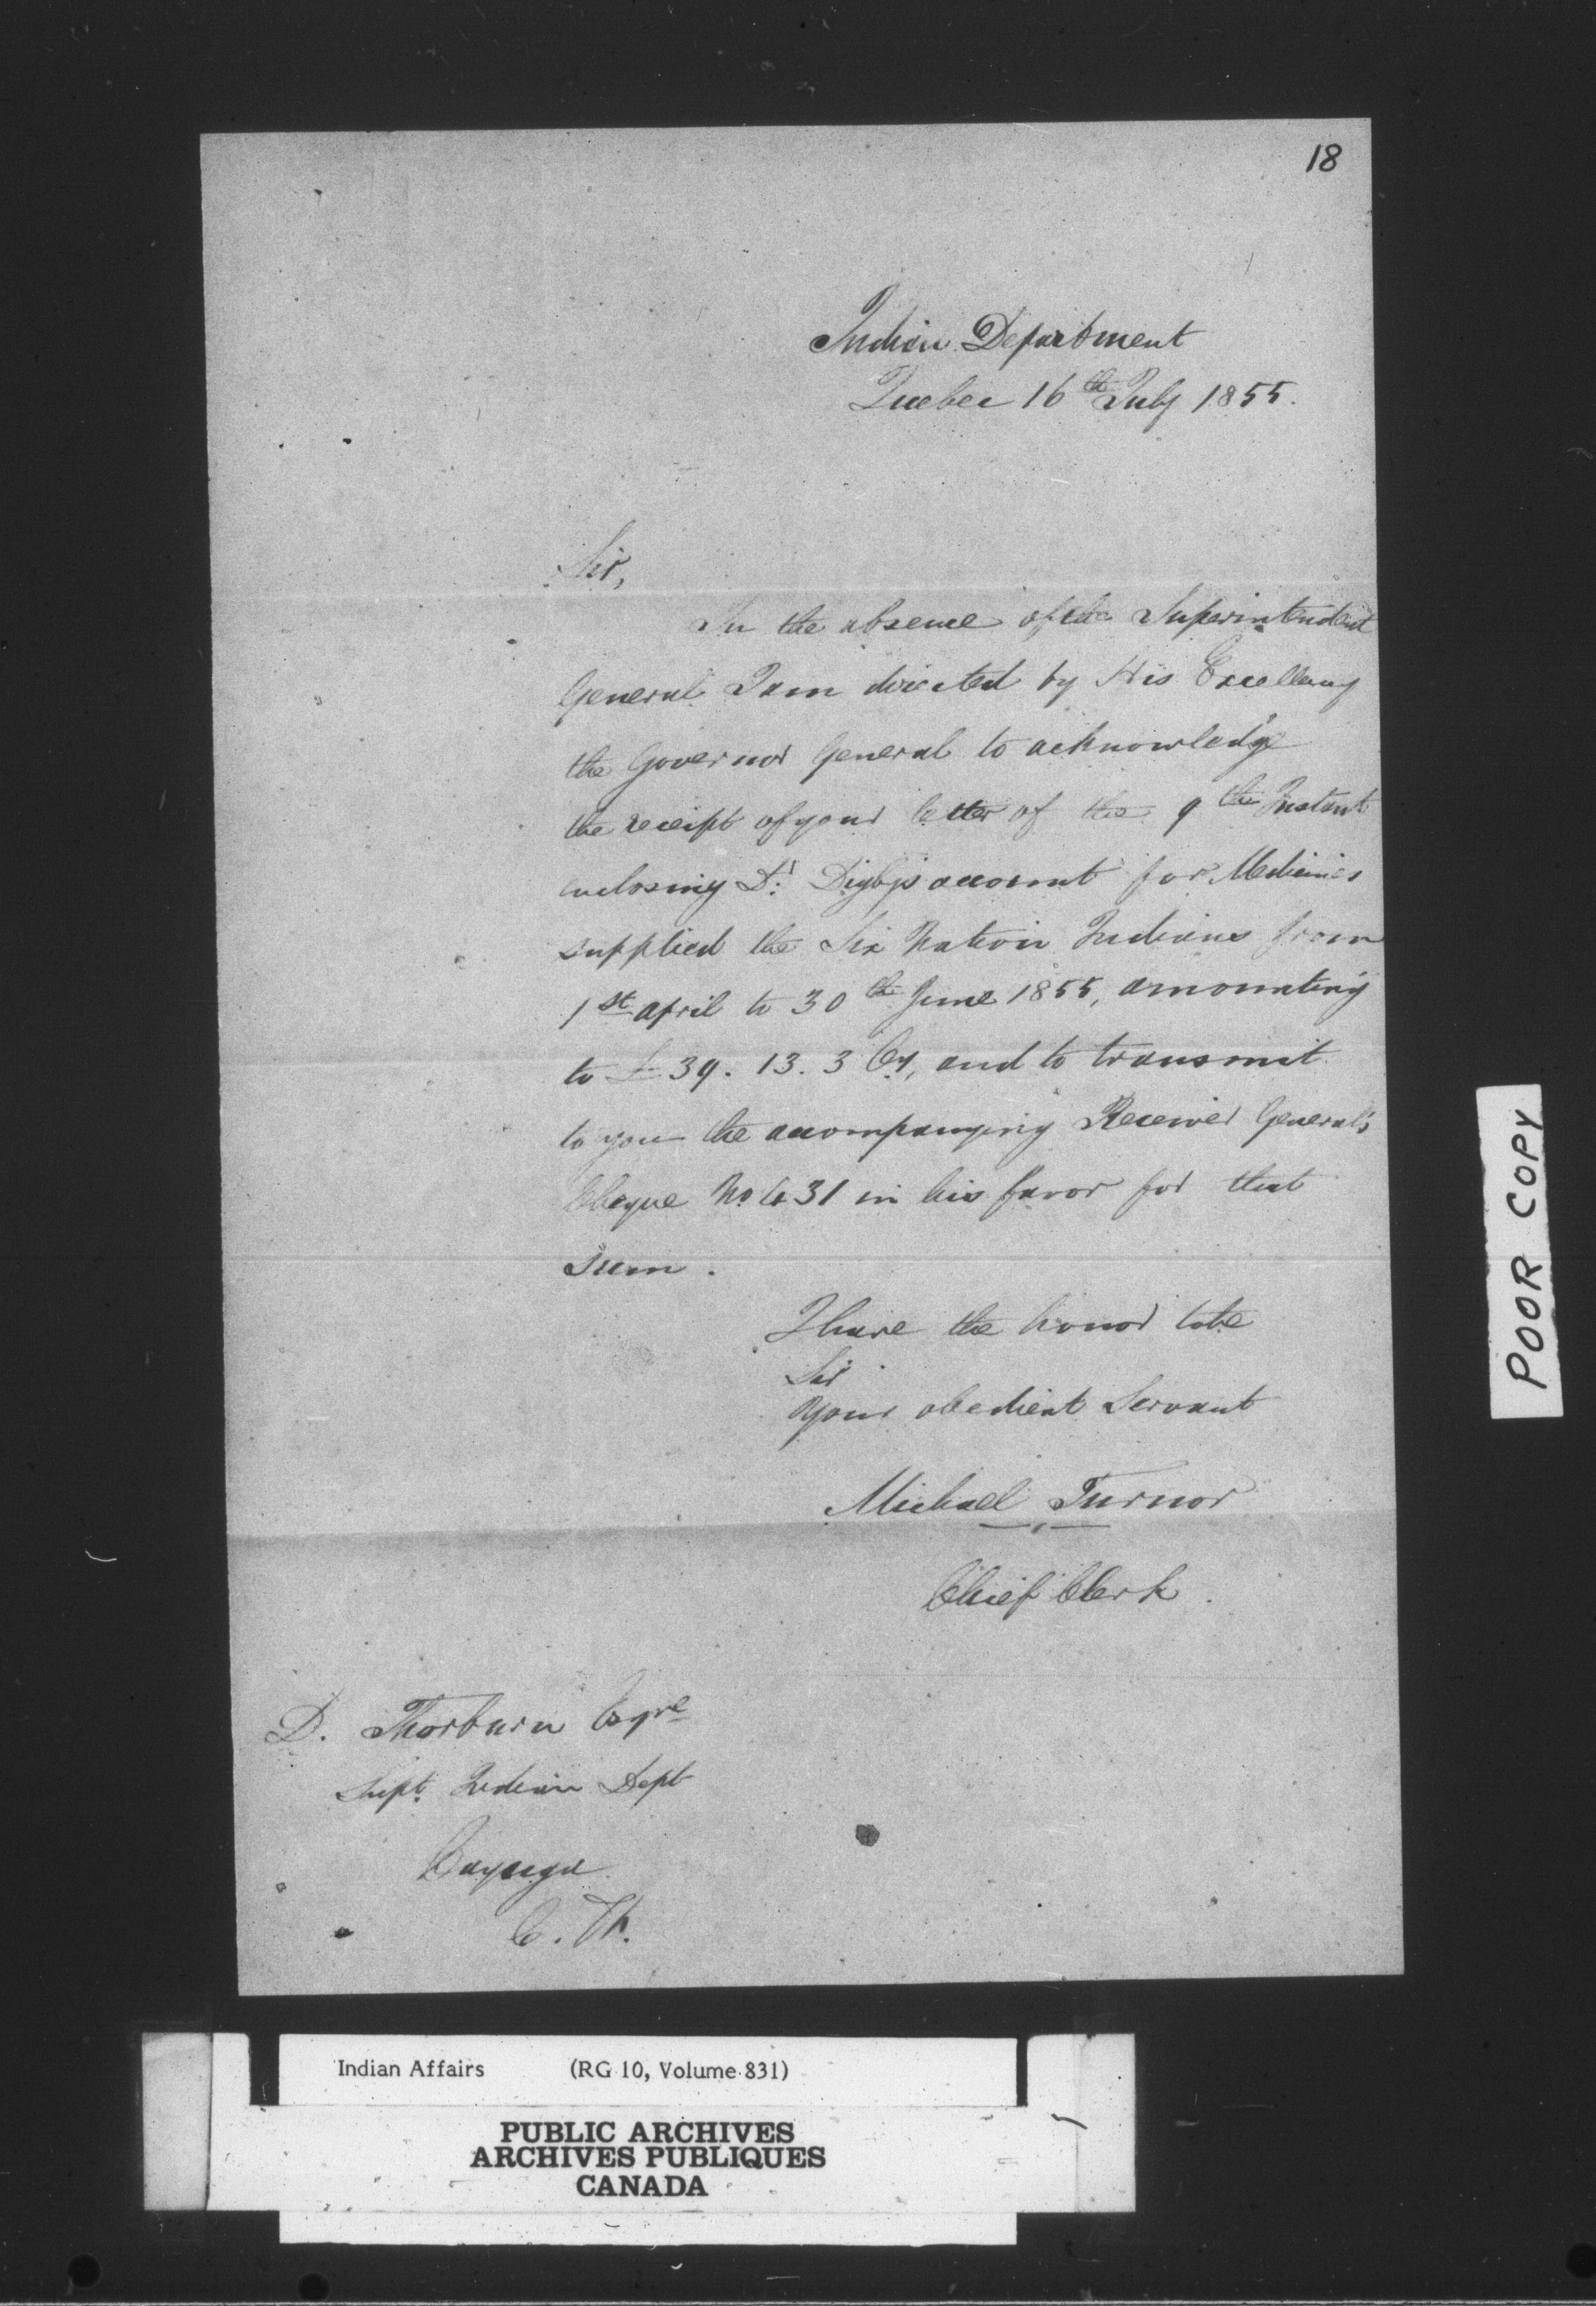 18
Indian Department
Quebec 16th July 1855.
Sir,
In the absence of the Superintendent
General I am directed by His Excellency
the Governor General to acknowledge
the receipt of your letter of the 9th Instant
enclosing Dr. Digby's account for Medicines
supplied the Six Nation Indians from
1st April to 30th June 1855, amounting
to £39. 13. 3 Cy, and to transmit
to you the accompanying Receiver General's
Cheque No 431 in his favor for that
Sum.
I have the honor to be
Sir
Your obedient Servant
Michael Turnor
Chief Clerk.
D. Thorburn Esqre
Supt. Indian Dept
Cayuga
C. W.
POOR COPY
Indian Affairs (RG 10, Volume 831)
PUBLIC ARCHIVES
ARCHIVES PUBLIQUES
CANADA